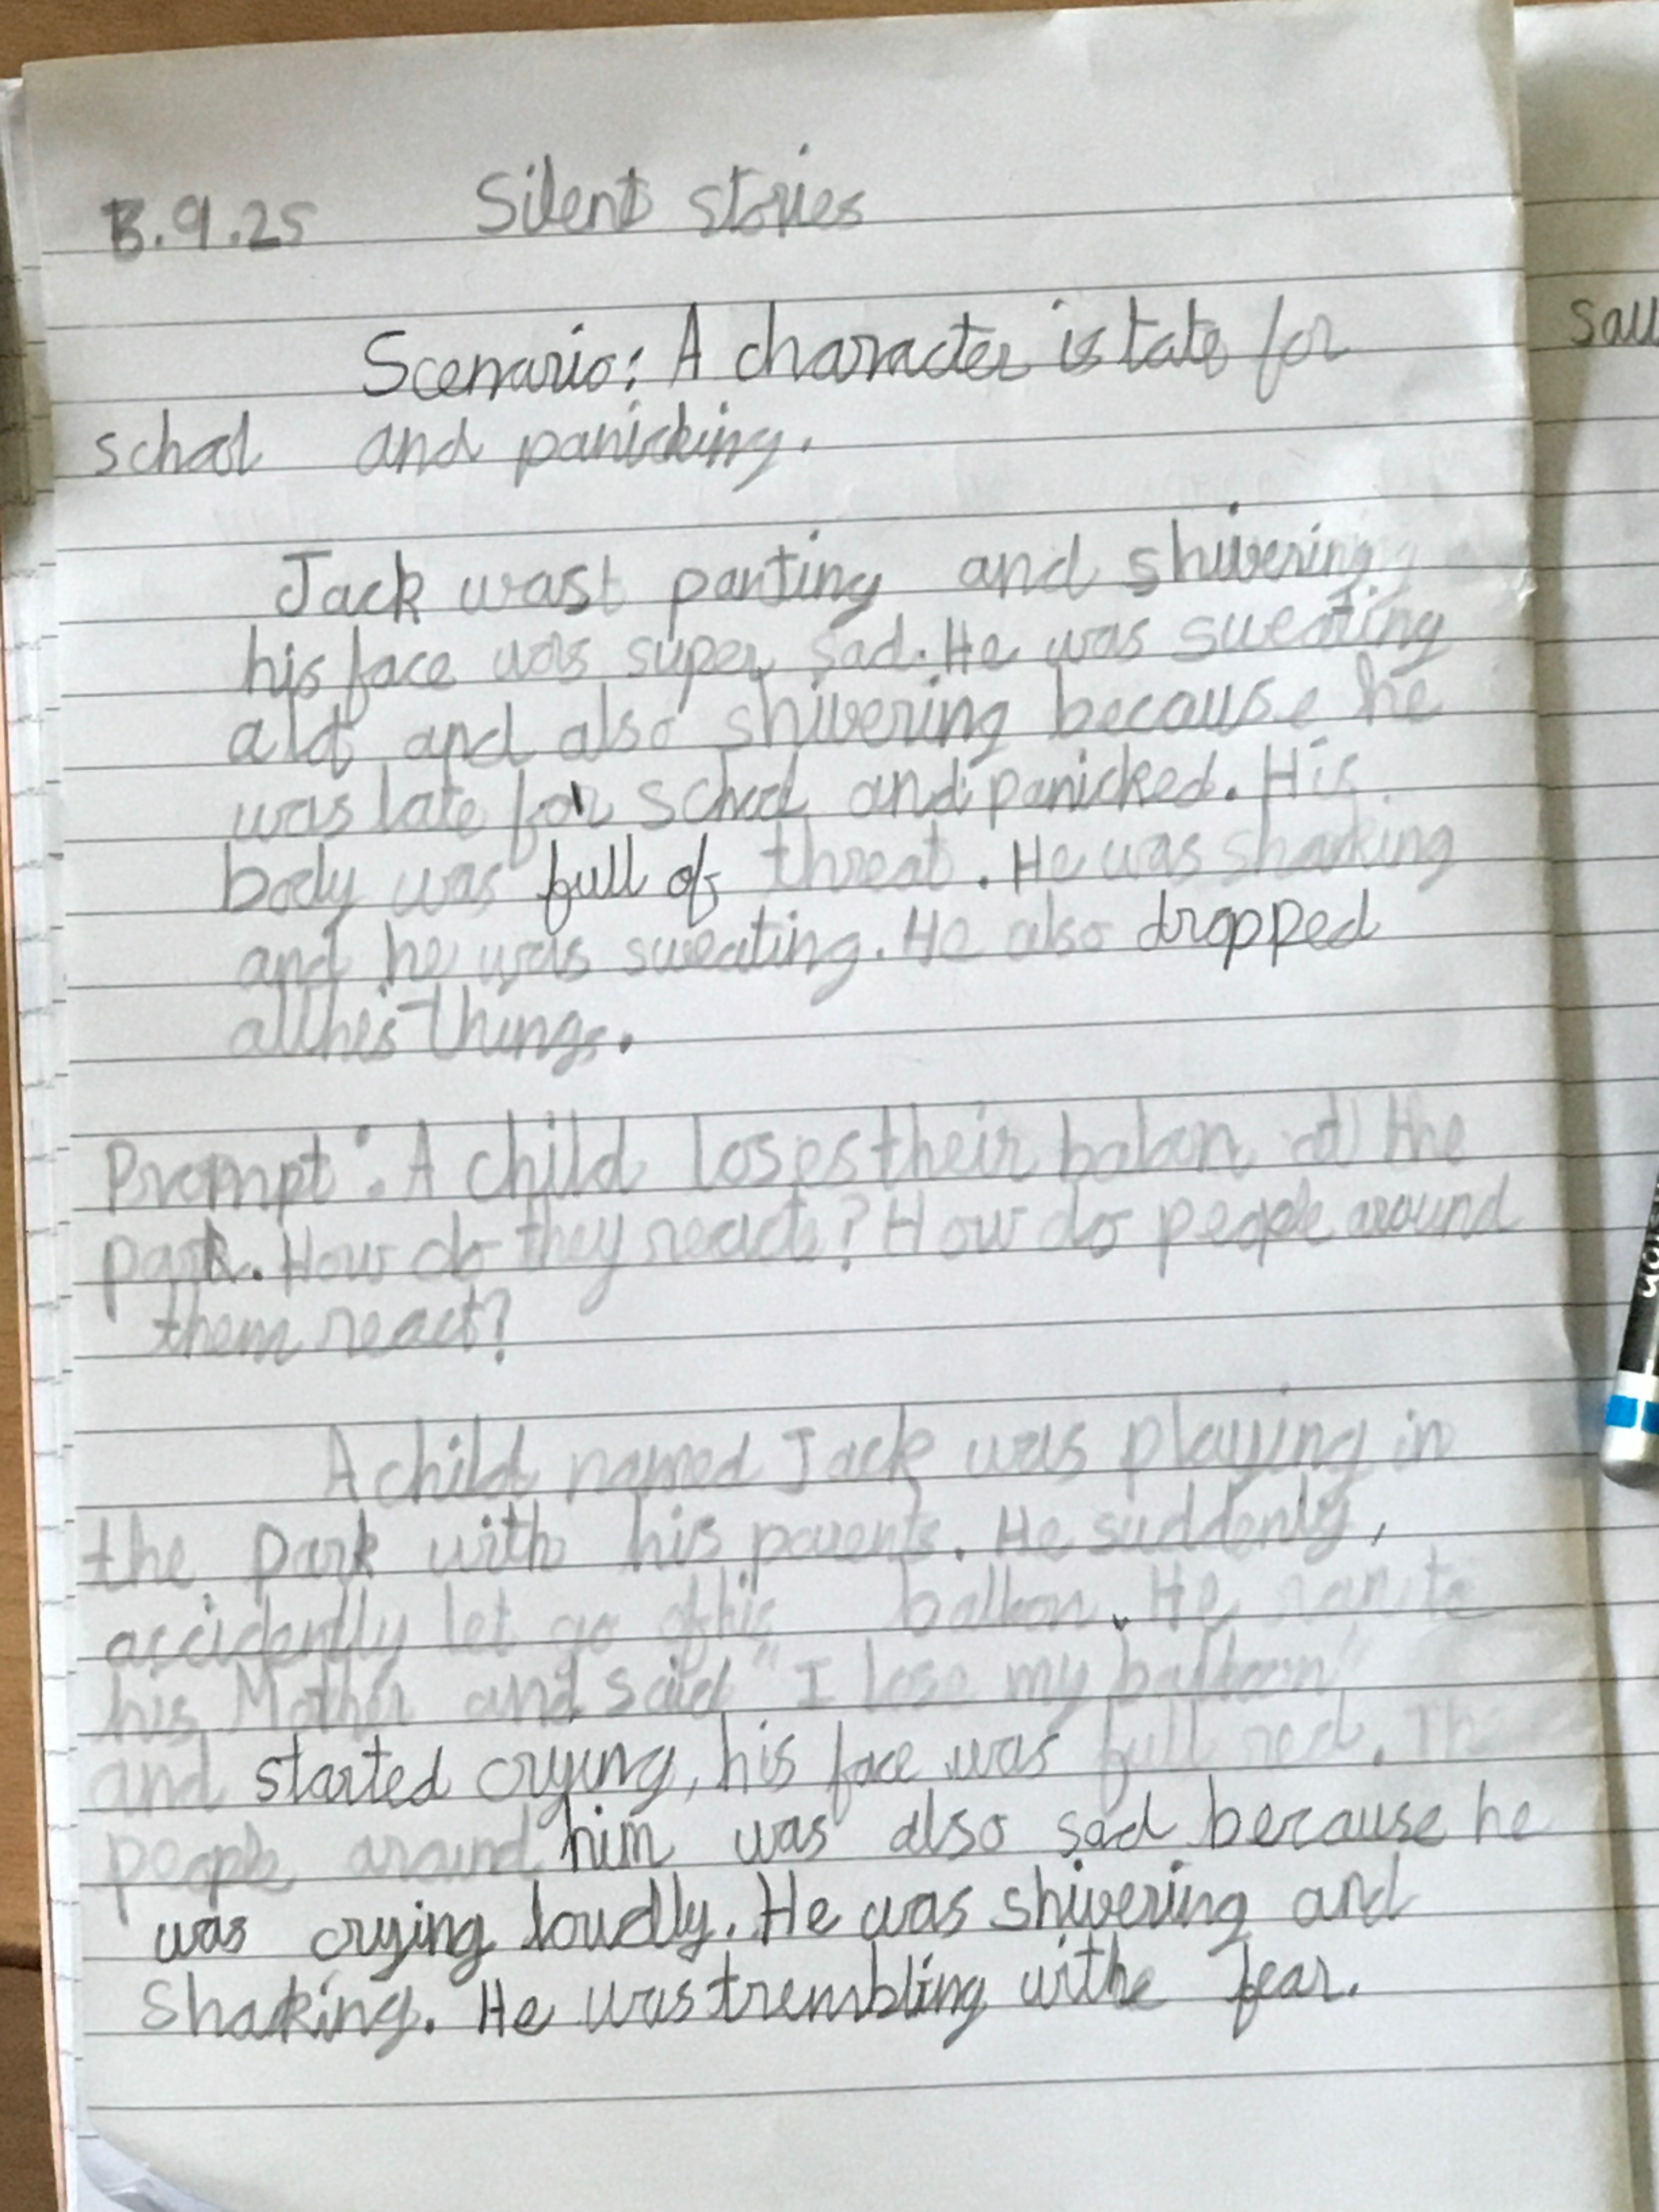 13.9.25 Silent stories
Scenario: A character is late for
school and panicking.
Jack wast panting and shivering
his face was super sad. He was sweating
alot and also shivering because he
was late for school and panicked. His
body was full of threat. He was shaking
and he was sweating. He also dropped
all his things.
Prompt: A child loses their baloon at the
park. How do they react? How do people around
them react?
A child named Jack was playing in
the park with his parents. He suddenly,
accidently let go of his balloon. He ran to
his Mother and said "I lose my balloon"
and started crying, his face was full red. The
people around him was also sad because he
was crying loudly. He was shivering and
Shaking. He was trembling withe fear.